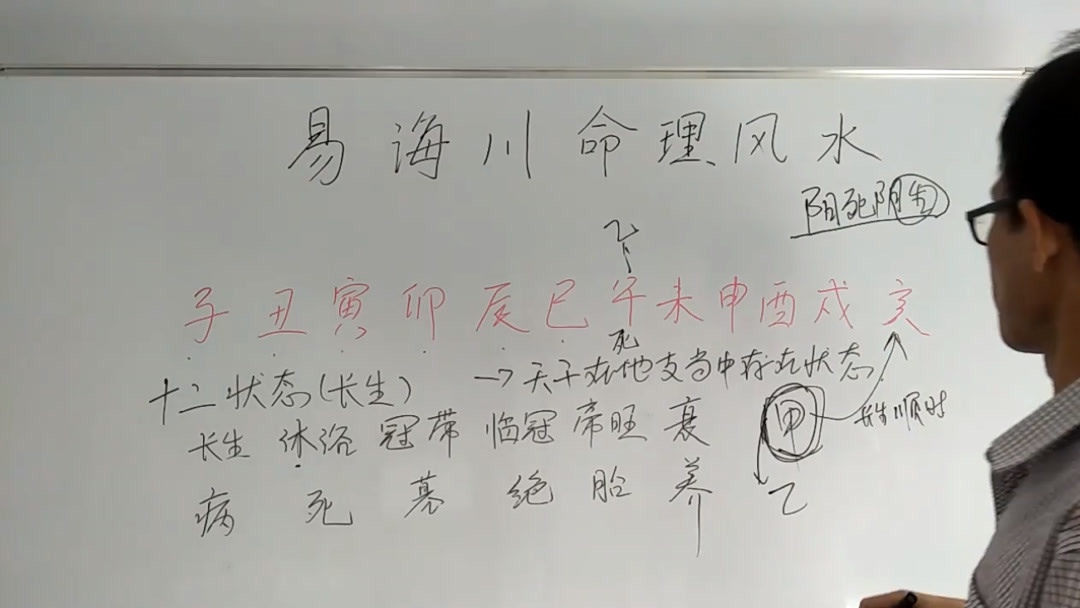 易海川命理风水
阳死阴生
乙
子丑寅卯辰巳午未申酉戌亥
死
十二状态(长生) → 天干在地支当中存在状态
长生 沐浴 冠带 临冠 帝旺 衰
甲 长生顺时
病 死 墓 绝 胎 养
乙